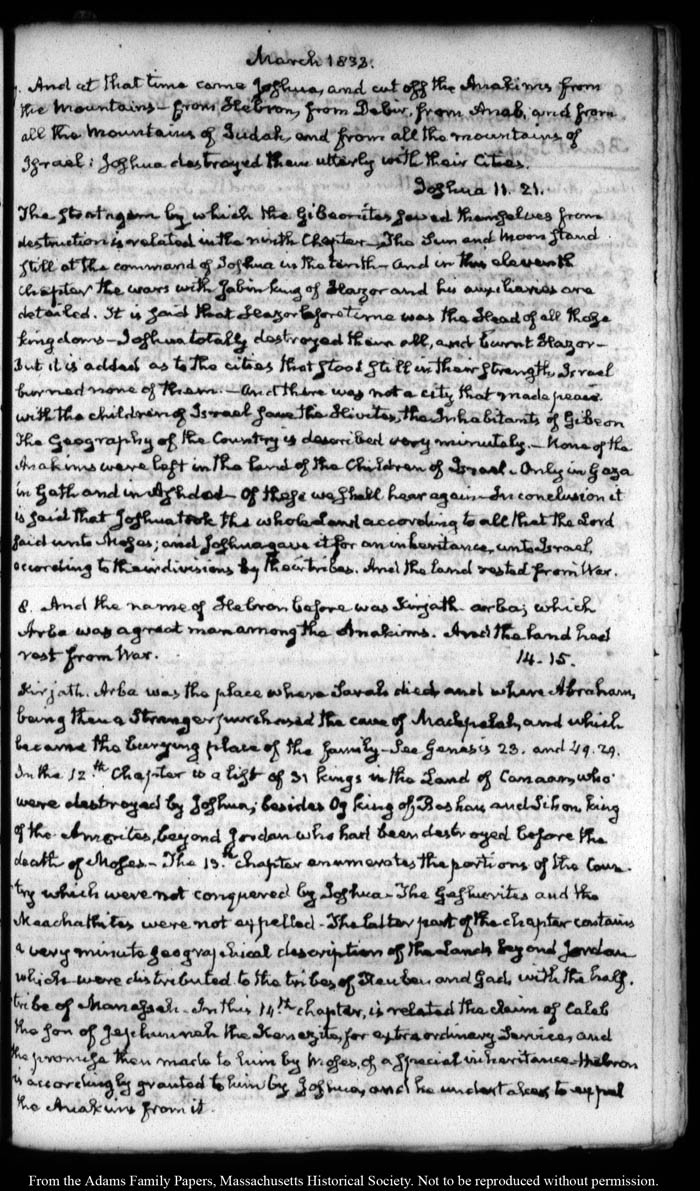 March 1838.
7. And at that time came Joshua, and cut off the Anakims from
the mountains – from Hebron, from Debir, from Anab, and from
all the mountains of Judah, and from all the mountains of
Israel: Joshua destroyed them utterly with their Cities.
Joshua 11. 21.
The stratagem by which the Gibeonites saved themselves from
destruction is related in the ninth Chapter – The Sun and Moon stand
still at the command of Joshua in the tenth – and in this eleventh
Chapter the wars with Jabin king of Hazor and his auxiliaries are
detailed. It is said that Hazor beforetime was the Head of all those
kingdoms – Joshua totally destroyed them all, and burnt Hazor –
But it is added as to the cities that stood still in their strength, Israel
burned none of them. – And there was not a city that made peace
with the children of Israel save the Hivites, the Inhabitants of Gibeon
The Geography of the Country is described very minutely. – None of the
Anakims were left in the land of the Children of Israel – Only in Gaza
in Gath and in Ashdod – Of these we shall hear again – In conclusion it
is said that Joshua took the whole Land according to all that the Lord
said unto Moses; and Joshua gave it for an inheritance, unto Israel,
according to their divisions by their tribes. And the land rested from War.
8. And the name of Hebron before was Kirjath-arba; which
Arba was a great man among the Anakims. And the land had
rest from War. 14. 15.
Kirjath. Arba was the place where Sarah died and where Abraham,
being then a Stranger purchased the cave of Machpelah, and which
became the burying place of the family – See Genesis 23. and 49. 29.
In the 12th Chapter is a list of 31 kings in the Land of Canaan, who
were destroyed by Joshua; besides Og king of Bashan and Sihon king
of the Amorites, beyond Jordan who had been destroyed before the
death of Moses – The 13th chapter enumerates the portions of the Coun-
try which were not conquered by Joshua – The Geshurites and the
Maachathites were not expelled – The latter part of the chapter contains
a very minute geographical description of the Lands beyond Jordan
which were distributed to the tribes of Reuben and Gad, with the half-
tribe of Manasseh – In this 14th chapter, is related the claim of Caleb
the son of Jephunneh the Kenezite, for extraordinary Services and
the promise then made to him by Moses, of a special inheritance – Hebron
is accordingly granted to him by Joshua, and he undertakes to expel
the Anakims from it.
From the Adams Family Papers, Massachusetts Historical Society. Not to be reproduced without permission.